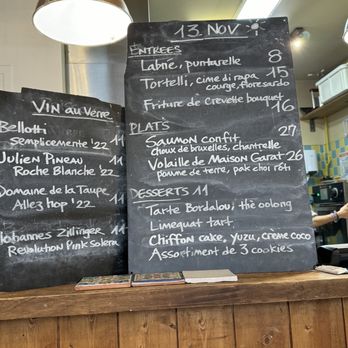 Vin au Verre
Bellotti
Semplicemente '22 11
Julien Pineau
Roche Blanche '22 11
Domaine de la Taupe
Allez hop '22 11
Johannes Zillinger
Revolution Pink Solera 11
13. Nov
Entrées
Labné, puntarelle 8
Tortelli, cime di rapa 15
courge, fiore sardo
Friture de Crevette bouquet 16
Plats
Saumon confit 27
choux de bruxelles, chantrelle
Volaille de Maison Garat 26
pomme de terre, pak choi rôti
Desserts 11
Tarte Bordalou, thé oolong
Limequat tart
Chiffon cake, yuzu, crème coco
Assortiment de 3 cookies